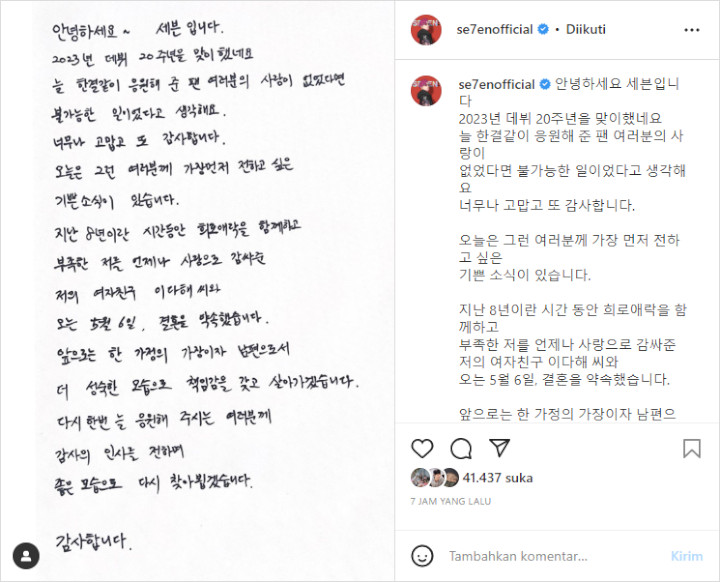 안녕하세요~ 세븐입니다.
2023년 데뷔 20주년을 맞이했네요
늘 한결같이 응원해 준 팬 여러분의 사랑이 없었다면
불가능한 일이었다고 생각해요.
너무나 고맙고 또 감사합니다.
오늘은 그런 여러분께 가장먼저 전하고 싶은
기쁜소식이 있습니다.
지난 8년이란 시간동안 희로애락을 함께하고
부족한 저를 언제나 사랑으로 감싸준
저의 여자친구 이다해 씨와
오는 5월 6일, 결혼을 약속했습니다.
앞으로는 한 가정의 가장이자 남편으로서
더 성숙한 모습으로 책임감을 갖고 살아가겠습니다.
다시 한번 늘 응원해 주시는 여러분께
감사의 인사를 전하며
좋은 모습으로 다시 찾아뵙겠습니다.
감사합니다.
se7enofficial • Diikuti
se7enofficial 안녕하세요 세븐입니
다
2023년 데뷔 20주년을 맞이했네요
늘 한결같이 응원해 준 팬 여러분의 사
랑이
없었다면 불가능한 일이었다고 생각해
요
너무나 고맙고 또 감사합니다.
오늘은 그런 여러분께 가장 먼저 전하
고 싶은
기쁜 소식이 있습니다.
지난 8년이란 시간 동안 희로애락을 함
께하고
부족한 저를 언제나 사랑으로 감싸준
저의 여자친구 이다해 씨와
오는 5월 6일, 결혼을 약속했습니다.
앞으로는 한 가정의 가장이자 남편으
41.437 suka
7 JAM YANG LALU
Tambahkan komentar... Kirim